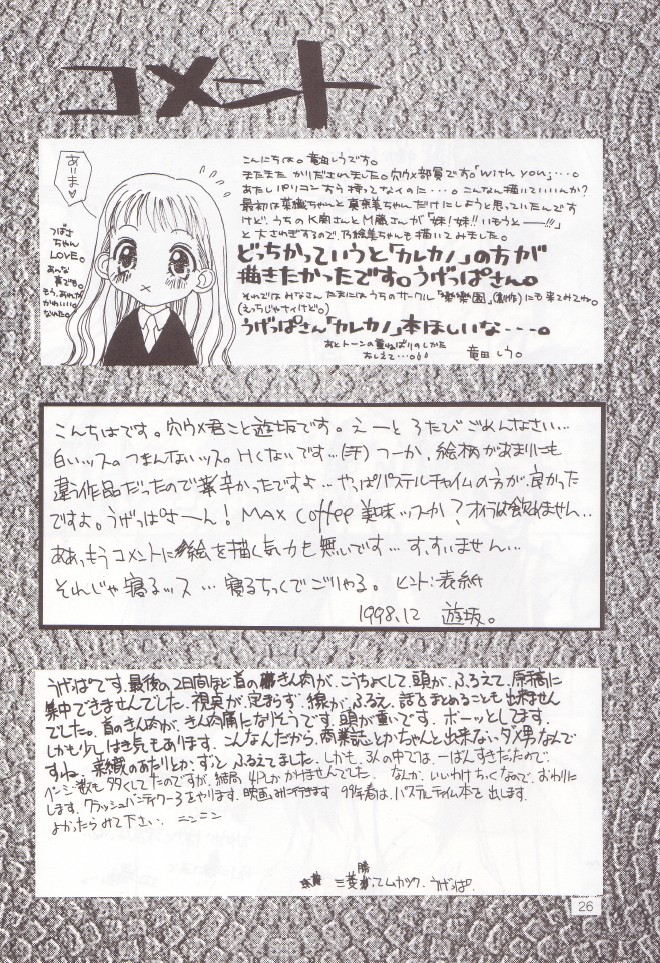 コメント
ありま♡
つばさ
ちゃん
LOVE。
あんな
妻でも。
もう、あれが
かわいい
なした。
こんにちは。竜田しうです。
またまた かりだされました。穴ウメ部員です。「with you」・・・。
あたしパソコンすら持ってないのに・・・。こんなん描いていいんか?
最初は菜織ちゃんと真奈美ちゃんだけにしようと思っていたんです
けど、うちのK南さんとM蔵さんが「妹!妹!!いもうとー!!!」
と大さわぎするので、乃絵美ちゃんも描いてみました。
どっちかっていうと「カレカノ」の方が
描きたかったです。うげっぱさん。
それではみなさん たまにはうちのサークル「楽園」(創作)にも来てみてね。
(えっちじゃナイけど。)
うげっぱさん「カレカノ」本ほしいな---。
あとトーンの重ねばりのしかた
おしえて…。
竜田しう。
こんちはです。穴ウメ君こと遊坂です。えーと ろたびごめんなさい…
白いッス。つまんないッス。Hくないです…(汗) つーか、絵柄があまりにも
違う作品だったので辛かったですよ…やっぱパステルチャイムの方が良かった
ですよ。うげっぱさーん! MAX coffee 美味ッスか?オイラは飲めません…
ああっもうコメントに絵を描く気力も無いです…す、すいません…
そんじゃ寝るッス…寝るちっくでごりゃる。ヒント:表紙
1998.12 遊坂。
うげっぱです。最後の2日間ほど首のきん肉が、こうちょくして、頭が、ふるえて、原稿に
集中できませんでした。視点が定まらず、線が、ふるえ、話をまとめることも出来ません
でした。首のきん肉が、きん肉痛になりそうです。頭が重いです。ボーッとしてます。
しかも少しはき気もあります。こんなんだから、商業誌とかちゃんと出来ないダメ男なんで
すね。菜織のあたりとか、ずっとふるえてました。しかも、3人の中では、一ばんすきだたので
ページ数も多くしてたのですが、結局 4Pしかかけませんでした。なんか、いいわけちっくなので、おわりに
します。「クラッシュバンディクー3」をやります。映画みに行きます 99年春は、パステルチャイム本を出します。
よかったらみて下さい。ニンニン
うげっぱ.
26